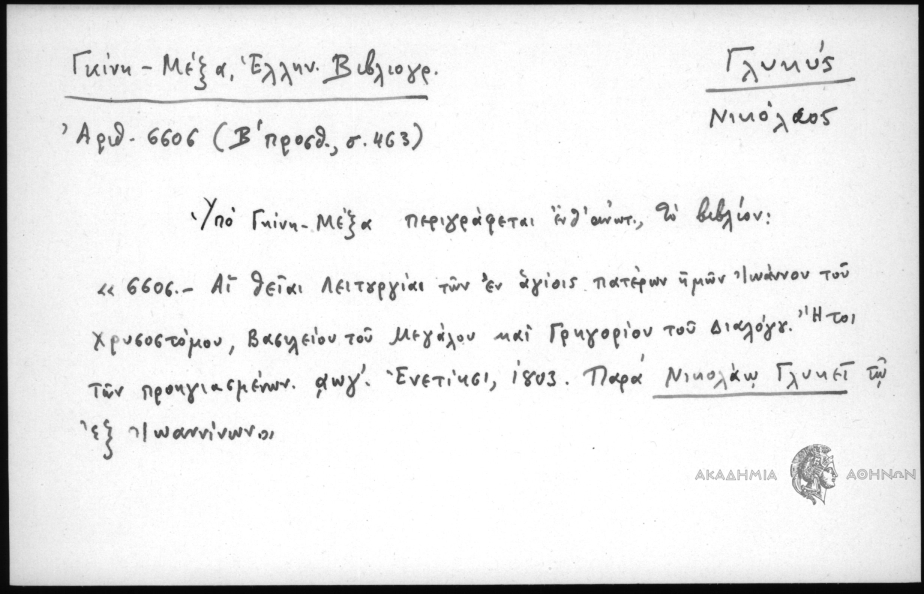 Γκίνη - Μέξα, Ἑλλην. Βιβλιογρ.
Γλυκύς
Νικόλαος
Ἀριθ. 6606 (Β' προσθ., σ. 463)
Ὑπό Γκίνη-Μέξα περιγράφεται ἔνθ' ἀνωτ., τό βιβλίον:
«6606.- Αἱ θεῖαι Λειτουργίαι τῶν ἐν ἁγίοις πατέρων ἡμῶν Ἰωάννου τοῦ
Χρυσοστόμου, Βασιλείου τοῦ Μεγάλου καί Γρηγορίου τοῦ Διαλόγου. Ἤτοι
τῶν προηγιασμένων. ͵αωγ'. Ἐνετίησι, 1803. Παρά Νικολάῳ Γλυκεῖ τῷ
ἐξ Ἰωαννίνων».
ΑΚΑΔΗΜΙΑ ΑΘΗΝΩΝ